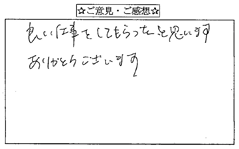 ☆ご意見・ご感想☆
良い仕事をしてもらったと思います
ありがとうございます